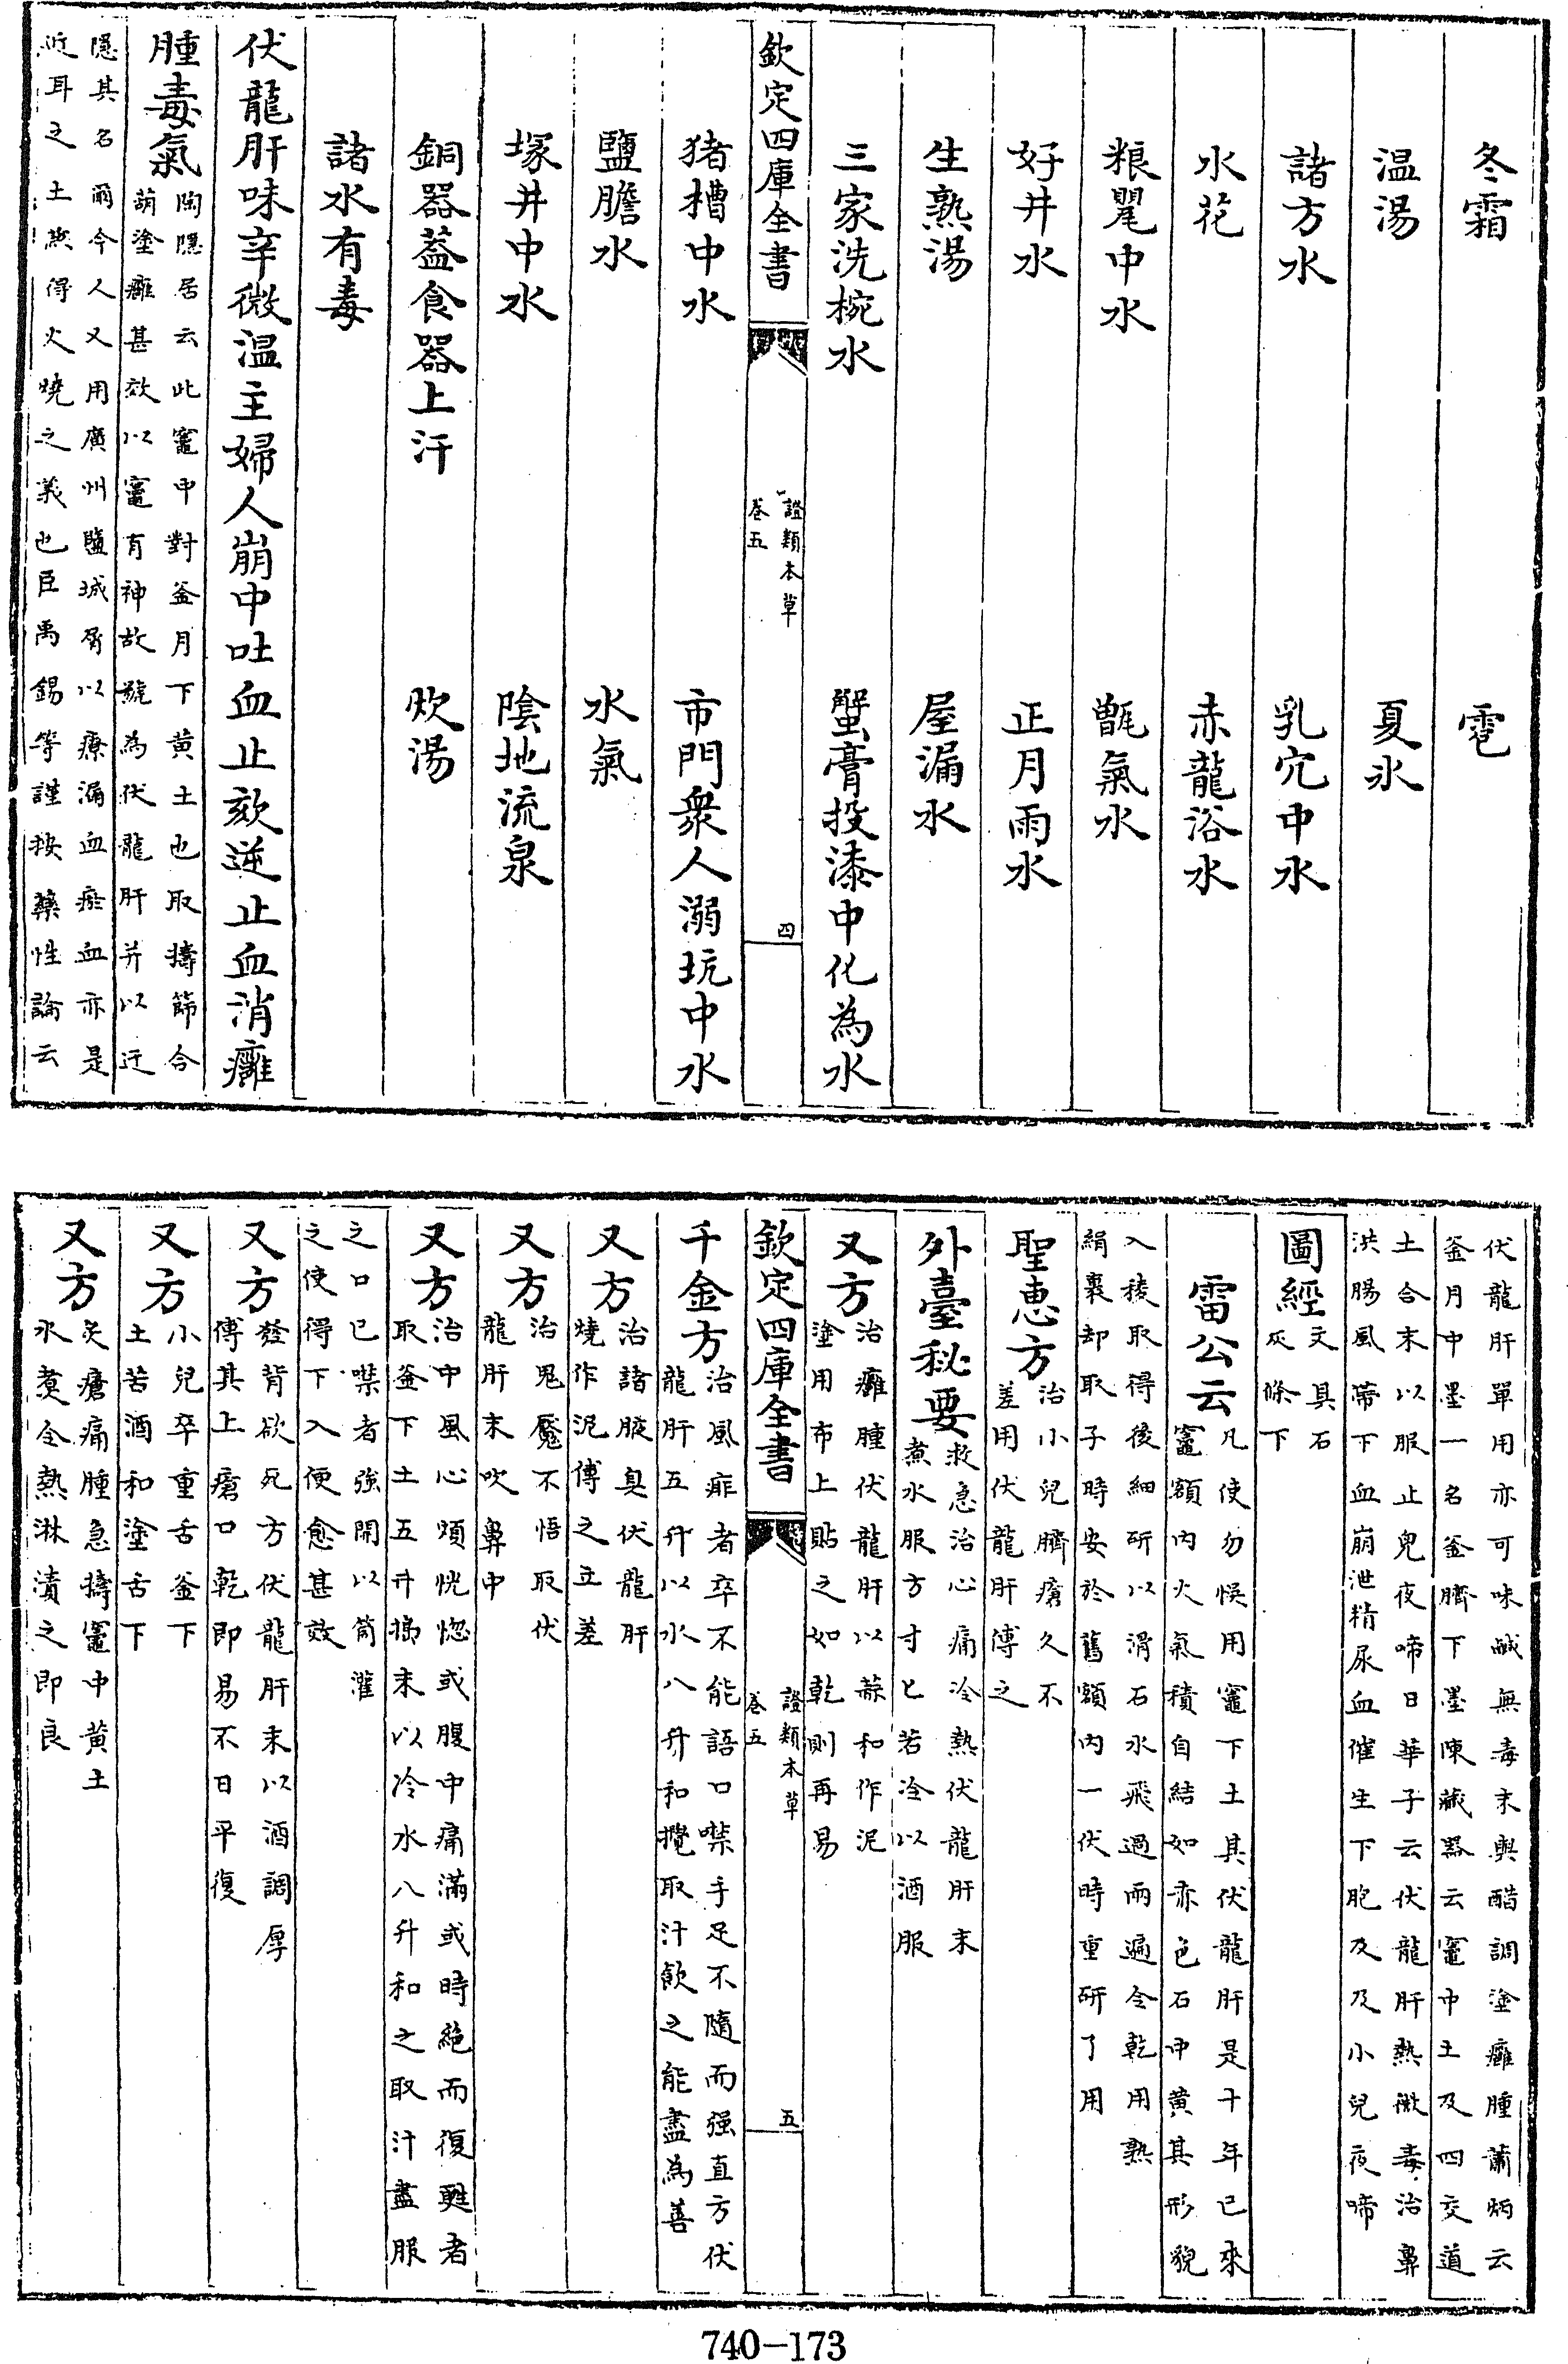 冬霜　雹
温湯　夏氷
諸方水　乳穴中水
水花　赤龍浴水
粮甖中水　甑氣水
好井水　正月雨水
生熟湯　屋漏水
三家洗椀水　蟹膏投漆中化為水
欽定四庫全書　證類本草卷五　四
猪槽中水　市門衆人溺坑中水
鹽膽水　水氣
塚井中水　陰地流泉
銅器葢食器上汗　炊湯
諸水有毒
伏龍肝味辛微温主婦人崩中吐血止欬逆止血消癰
腫毒氣
陶隠居云此竈中對釜月下黄土也取擣篩合
葫塗癰甚效以竈有神故號為伏龍肝并以迂
隠其名爾今人又用廣州鹽城屑以療漏血瘀血亦是
近耳之土燕得火燒之義也臣禹錫等謹按藥性論云
伏龍肝單用亦可味鹹無毒末與醋調塗癰腫蕭炳云
釜月中墨一名釜臍下墨陳藏器云竈中土及四交道
土合末以服止兒夜啼日華子云伏龍肝熱微毒治鼻
洪腸風帶下血崩泄精尿血催生下胞及及小兒夜啼
圖經
文具石
灰條下
雷公云
凡使勿悞用竈下土其伏龍肝是十年已來
竈額内火氣積自結如赤色石中黄其形貌
入稜取得後細研以滑石水飛過兩遍令乾用熟
絹裹却取子時安於舊額内一伏時重研了用
聖惠方
治小兒臍瘡久不
差用伏龍肝傅之
外臺秘要
救急治心痛冷熱伏龍肝末
煮水服方寸匕若冷以酒服
又方
治癰腫伏龍肝以蒜和作泥
塗用布上貼之如乾則再易
欽定四庫全書　證類本草卷五　五
千金方
治風痱者卒不能語口噤手足不隨而强直方伏
龍肝五升以水八升和攪取汁飲之能盡為善
又方
治諸腋臭伏龍肝
燒作泥傅之立差
又方
治鬼魘不悟取伏
龍肝末吹鼻中
又方
治中風心煩恍惚或腹中痛滿或時絶而復甦者
取釜下土五升搗末以冷水八升和之取汁盡服
之口已噤者強開以筒灌
之使得下入便愈甚效
又方
發背欲死方伏龍肝末以酒調厚
傅其上瘡口乾即易不日平復
又方
小兒卒重舌釜下
土苦酒和塗舌下
又方
灸瘡痛腫急擣竈中黄土
水煮令熱淋漬之即良
740-173